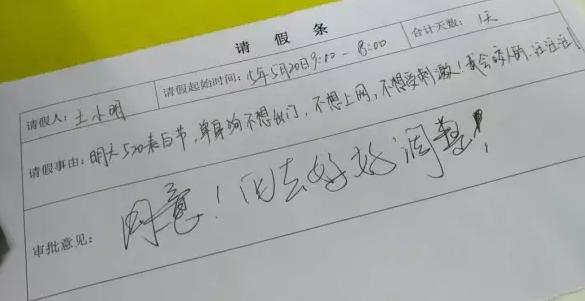 请假条
请假人：土小明 请假起始时间：15年5月20日9:00-8:00 合计天数：1天
请假事由：明天520表白节，单身狗不想出门，不想上网，不想受刺激！我会哭的，汪汪汪！
审批意见：同意！回去好好调整！